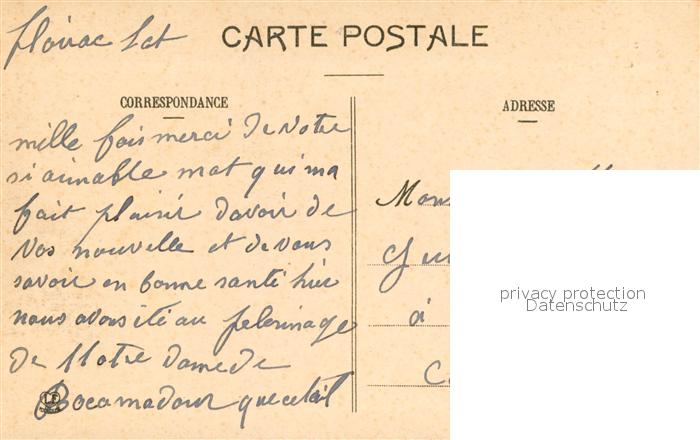 floirac Lot
CARTE POSTALE
CORRESPONDANCE
ADRESSE
mille fois merci de votre
si aimable mot qui ma
fait plaisir davoir de
vos nouvelle et de vous
savoir en bonne santé hier
nous avons ité au pelerinage
de Notre dame de
Rocamadour que cetait
Mons
à
privacy protection
Datenschutz